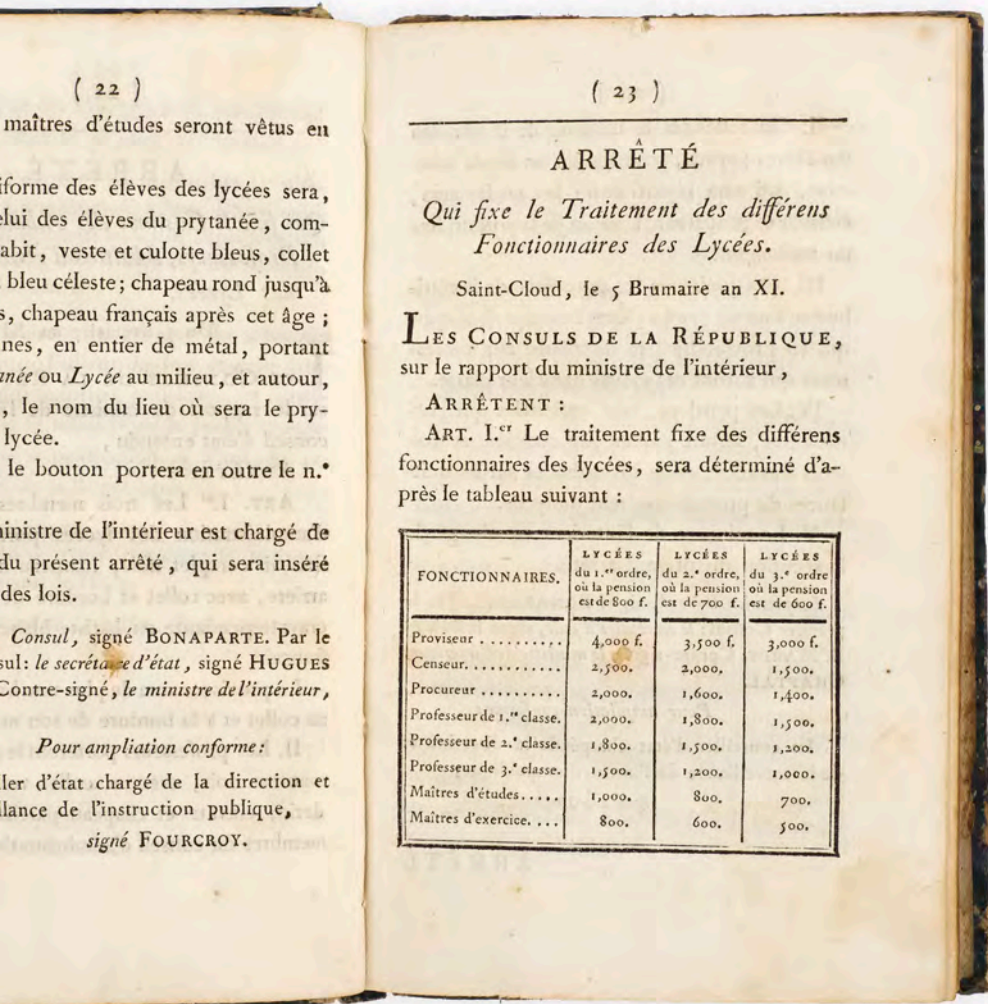 ( 22 )
maîtres d'études seront vêtus en
iforme des élèves des lycées sera,
elui des élèves du prytanée, com-
abit, veste et culotte bleus, collet
bleu céleste; chapeau rond jusqu'à
s, chapeau français après cet âge;
nes, en entier de métal, portant
anée ou Lycée au milieu, et autour,
, le nom du lieu où sera le pry-
lycée.
le bouton portera en outre le n.°
inistre de l'intérieur est chargé de
du présent arrêté, qui sera inséré
des lois.
Consul, signé BONAPARTE. Par le
sul: le secrétaire d'état, signé HUGUES
Contre-signé, le ministre de l'intérieur,
Pour ampliation conforme:
ller d'état chargé de la direction et
llance de l'instruction publique,
signé FOURCROY.
( 23 )
ARRÊTÉ
Qui fixe le Traitement des différens
Fonctionnaires des Lycées.
Saint-Cloud, le 5 Brumaire an XI.
LES CONSULS DE LA RÉPUBLIQUE,
sur le rapport du ministre de l'intérieur,
ARRÊTENT :
ART. I.er Le traitement fixe des différens
fonctionnaires des lycées, sera déterminé d'a-
près le tableau suivant :
FONCTIONNAIRES. LYCÉES du 1.er ordre, où la pension est de 800 f. LYCÉES du 2.e ordre, où la pension est de 700 f. LYCÉES du 3.e ordre où la pension est de 600 f.
Proviseur .......... 4,000 f. 3,500 f. 3,000 f.
Censeur............ 2,500. 2,000. 1,500.
Procureur .......... 2,000. 1,600. 1,400.
Professeur de 1.re classe. 2,000. 1,800. 1,500.
Professeur de 2.e classe. 1,800. 1,500. 1,200.
Professeur de 3.e classe. 1,500. 1,200. 1,000.
Maîtres d'études..... 1,000. 800. 700.
Maîtres d'exercice.... 800. 600. 500.